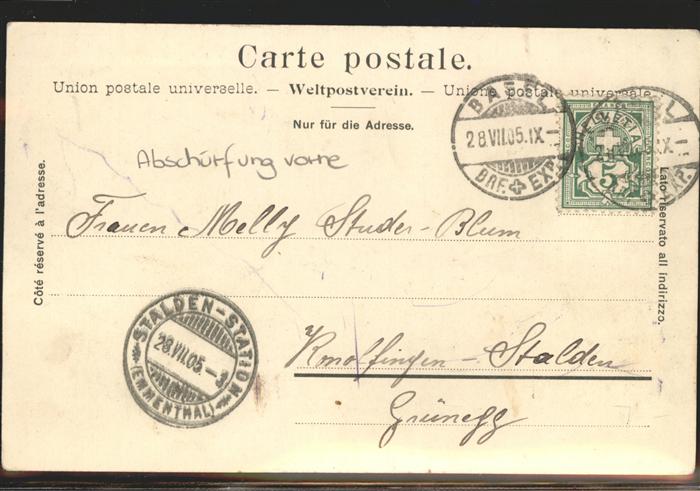 Carte postale.
Union postale universelle. — Weltpostverein. — Unione postale universale
Nur für die Adresse.
BASEL
28.VII.05.IX
BRF. EXP.
HELVETIA
5
Abschürfung vorne
Côté réservé à l'adresse.
Lato riservato all indirizzo.
Frauen Melly Studer-Blum
STALDEN-STATION
28.VII.05.
(EMMENTHAL)
Konolfingen-Stalden
Grünegg